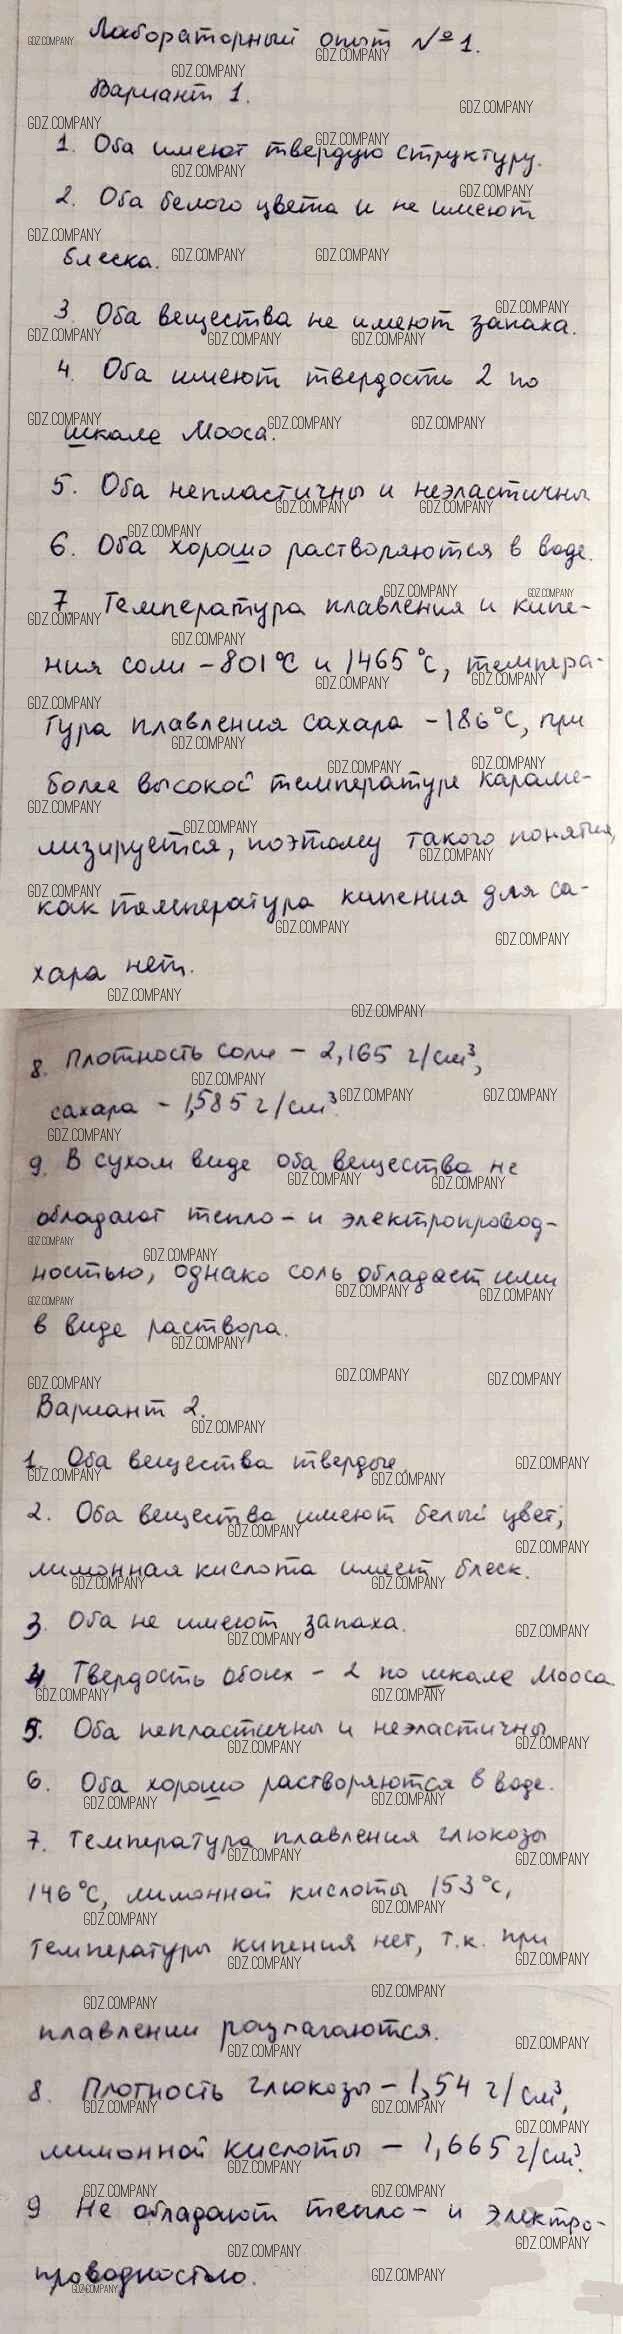 Лабораторный опыт №1.
Вариант 1.
1. Оба имеют твердую структуру.
2. Оба белого цвета и не имеют
блеска.
3. Оба вещества не имеют запаха.
4. Оба имеют твердость 2 по
шкале Мооса.
5. Оба непластичны и неэластичны
6. Оба хорошо растворяются в воде.
7. Температура плавления и кипе-
ния соли - 801°С и 1465°С, темпера-
тура плавления сахара - 186°С, при
более высокой температуре караме-
лизируется, поэтому такого понятия,
как температура кипения для са-
хара нет.
8. Плотность соли - 2,165 г/см³,
сахара - 1,585 г/см³.
9. В сухом виде оба вещества не
обладают тепло- и электропровод-
ностью, однако соль обладает ими
в виде раствора.
Вариант 2.
1. Оба вещества твердые.
2. Оба вещества имеют белый цвет,
лимонная кислота имеет блеск.
3. Оба не имеют запаха.
4. Твердость обоих - 2 по шкале Мооса.
5. Оба непластичны и неэластичны
6. Оба хорошо растворяются в воде.
7. Температура плавления глюкозы
146°С, лимонной кислоты 153°С,
температуры кипения нет, т.к. при
плавлении разлагаются.
8. Плотность глюкозы - 1,54 г/см³,
лимонной кислоты - 1,665 г/см³.
9 Не обладают тепло- и электро-
проводностью.
GDZ.COMPANY